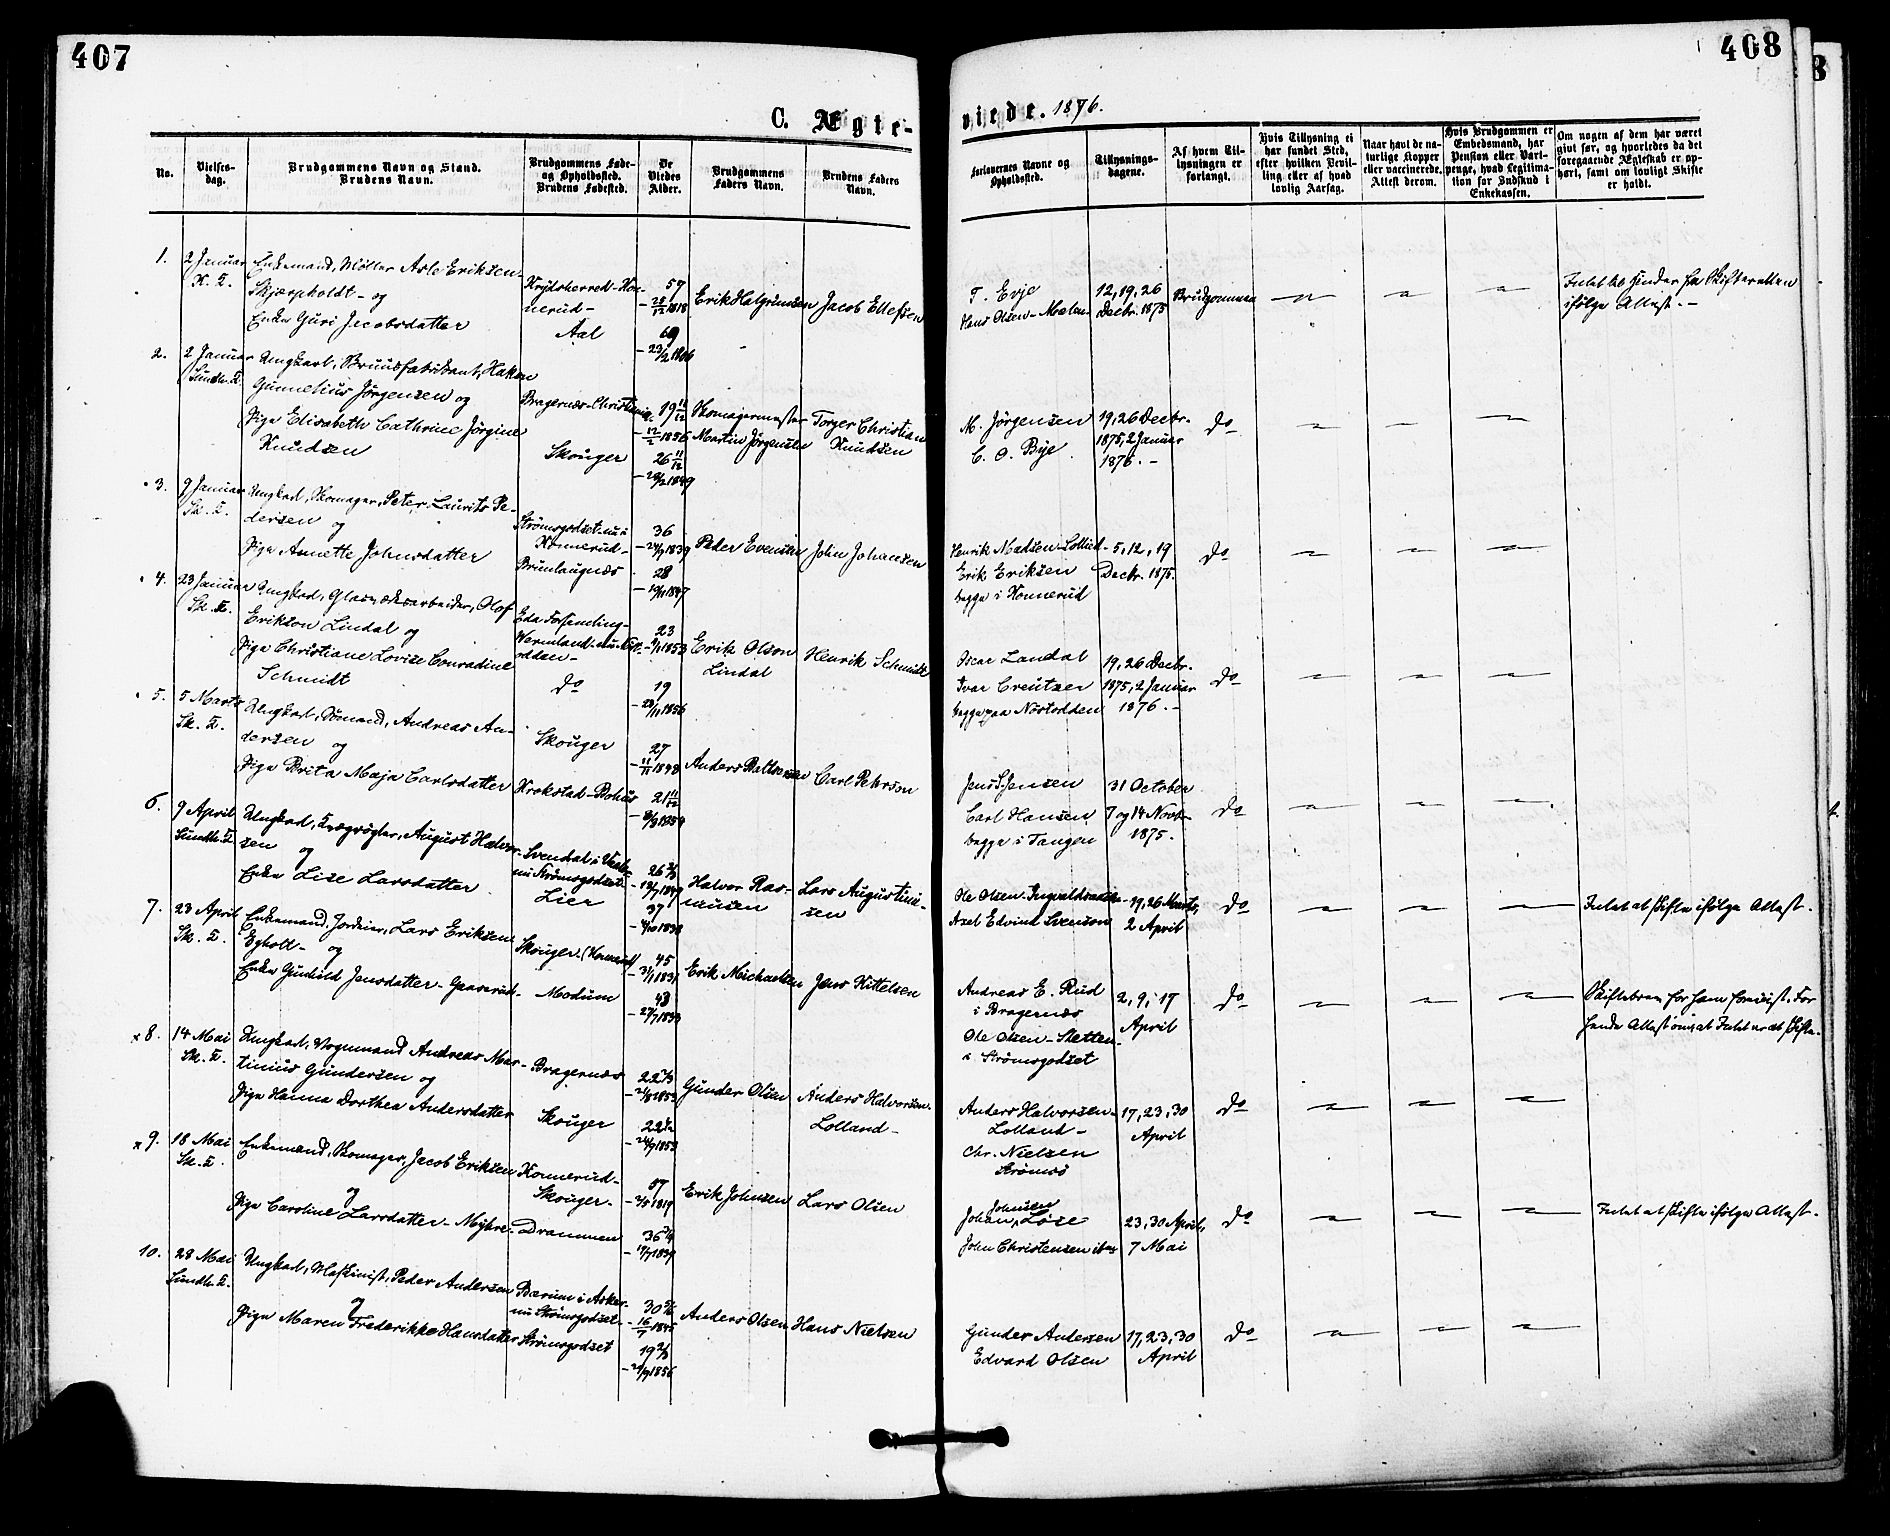 407
408
C. Ægte-
viede. 1876.
No.
Vielses-
dag.
Brudgommens Navn og Stand.
Brudens Navn.
Brudgommens Føde-
og Opholdssted.
Brudens Fødested.
De
Viedes
Alder.
Brudgommens
Faders Navn.
Brudens Faders
Navn.
Forlovernes Navne og
Opholdssted.
Tillysnings-
dagene.
Af hvem Til-
lysningen er
forlangt.
Hvis Tillysning ei
har fundet Sted,
efter hvilken Bevil-
ling eller af hvad
lovlig Aarsag.
Naar havt de na-
turlige Kopper
eller vaccinerede.
Attest derom.
Hvis Brudgommen er
Embedsmand, har
Pension eller Vart-
penge, hvad Legitima-
tion for Indskud i
Enkekassen.
Om nogen af dem har været
givt før, og hvorledes da det
foregaaende Ægteskab er op-
hørt, samt om lovligt Skifte
er holdt.
1.
2 Januar
K. T.
Enkemand, Møller Asle Eriksen-
Skjærpholdt- og
Enke Guri Jacobsdatter
Krydsherred-Kon-
nerud-
Aal
57
- 28/12 1818
69
- 23/2 1806
Erik Halgrimsen
Jacob Ellefsen
T. Evje
Hans Olsen-Moelen-
12, 19, 26
Decbr. 1875
Brudgommen
ifølge Attest.-
2.
2 Januar
Sundh. T.
Ungkarl, Bruusfabrikant, Hakon
Gunnelius Jørgensen og
Pige Elisabeth Cathrine Jørgine
Knudsen
Bragernæs-Christiania-
Skouger
19 11/12
- 12/2 1856
26 11/12
- 20/2 1849
Skomagermester
Martin Jørgensen
Torger Christian
Knudsen
M. Jørgensen
C. O. Bye
19, 26 Decbr.
1875, 2 Januar
1876.-
do
3.
9 Januar
Sk. T.
Ungkarl, Skomager, Peter Laurits Pe-
dersen og
Pige Annette Johnsdatter
Strømsgodset-nu i
Konnerud-
Brunlaugnæs
36
- 24/9 1839
28
- 10/11 1847
Peder Evensen
John Johansen
Henrik Madsen-Lolland-
Erik Eriksen
begge i Konnerud
5, 12, 19
Decbr. 1875.
do
4.
23 Januar
Sk. T.
Ungkarl, Glasværksarbeider, Olof
Erikson Lindal og
Pige Christiane Lovise Conradine
Schmidt
Eda Forsamling-
Wermland-nu Nøst-
odden-
do
23
1853
19
- 23/11 1856
Erik Olson
Lindal
Henrik Schmidt
Oscar Landal
Ivar Creutzer
begge paa Nøstodden
19, 26 Decbr.
1875, 2 Januar
1876.-
do
5.
5 Marts
Sk. T.
Ungkarl, Sømand, Andreas An-
dersen og
Pige Brita Maja Carlsdatter
Skouger
Krokstad-Bohus
27
- 11/11 1848
21 11/12
Anders Baltsersen
Carl Pehrson
Jens S. Jensen
Carl Hansen
begge i Tangen
31 October
7 og 14 Novbr.
1875.
do
6.
9 April
Sundh. T.
Ungkarl, Kvægrøgter, August Halvor-
sen og
Enke Lise Larsdatter
nu Strømsgodset-
Lier
26 2/3
37
Halvor Ras-
mussen
Lars Augustinu-
sen
Ole Olsen-
Axel Edvind Svenson
19, 26 Marts,
2 April
do
Intet at skifte ifølge Attest.
7.
23 April
Sk. T.
Enkemand, Jordeier, Lars Eriksen
Egholt- og
Enke Gunhild Jensdatter-Gaaserud-
Skouger-(Konnerud)
Modum
45
- 31/1 1831
43
- 27/7 1833
Erik Michaelsen
Jens Kittelsen
Andreas E. Rud
i Bragernæs
Ole Olsen-Stetten-
i Strømsgodset
2, 9, 17
April
do
Skiftebrev for ham forevist. For
hende Attest om, at Intet er at skifte.
x 8.
14 Mai
Sk. T.
Ungkarl, Vognmand Andreas Mar-
tinius Gundersen og
Pige Hanna Dorthea Andersdatter
Bragernæs
Skouger
22 2/3
- 21/8 1853
22 1/2
- 24/9 1853
Gunder Olsen
Anders Halvorsen-
Lolland-
Anders Halvorsen-
Lolland-
Chr. Nielsen
Strømsø
17, 23, 30
April
do
x 9.
18 Mai
Sk. T.
Enkemand, Skomager, Jacob Eriksen
og
Pige Caroline Larsdatter-Myhre-
Konnerud-
Skouger-
Drammen
57
- 2/5 1819
36 3/4
- 17/7 1839
Erik Johnsen
Lars Olsen
Johan Johnsen Løse
John Christensen ibm
23, 30 April,
7 Mai
do
Intet at skifte ifølge Attest.
10.
28 Mai
Sundh. T.
Ungkarl, Maskinist, Peder Andersen
og
Pige Maren Frederikke Hansdatter
Bærum i Asker-
nu Strømsgodset-
Strømsgodset
30 5/6
- 16/7 1845
19 2/3
- 21/9 1856
Anders Olsen
Hans Nielsen
Gunder Andersen
Edvard Olsen
17, 23, 30
April
do